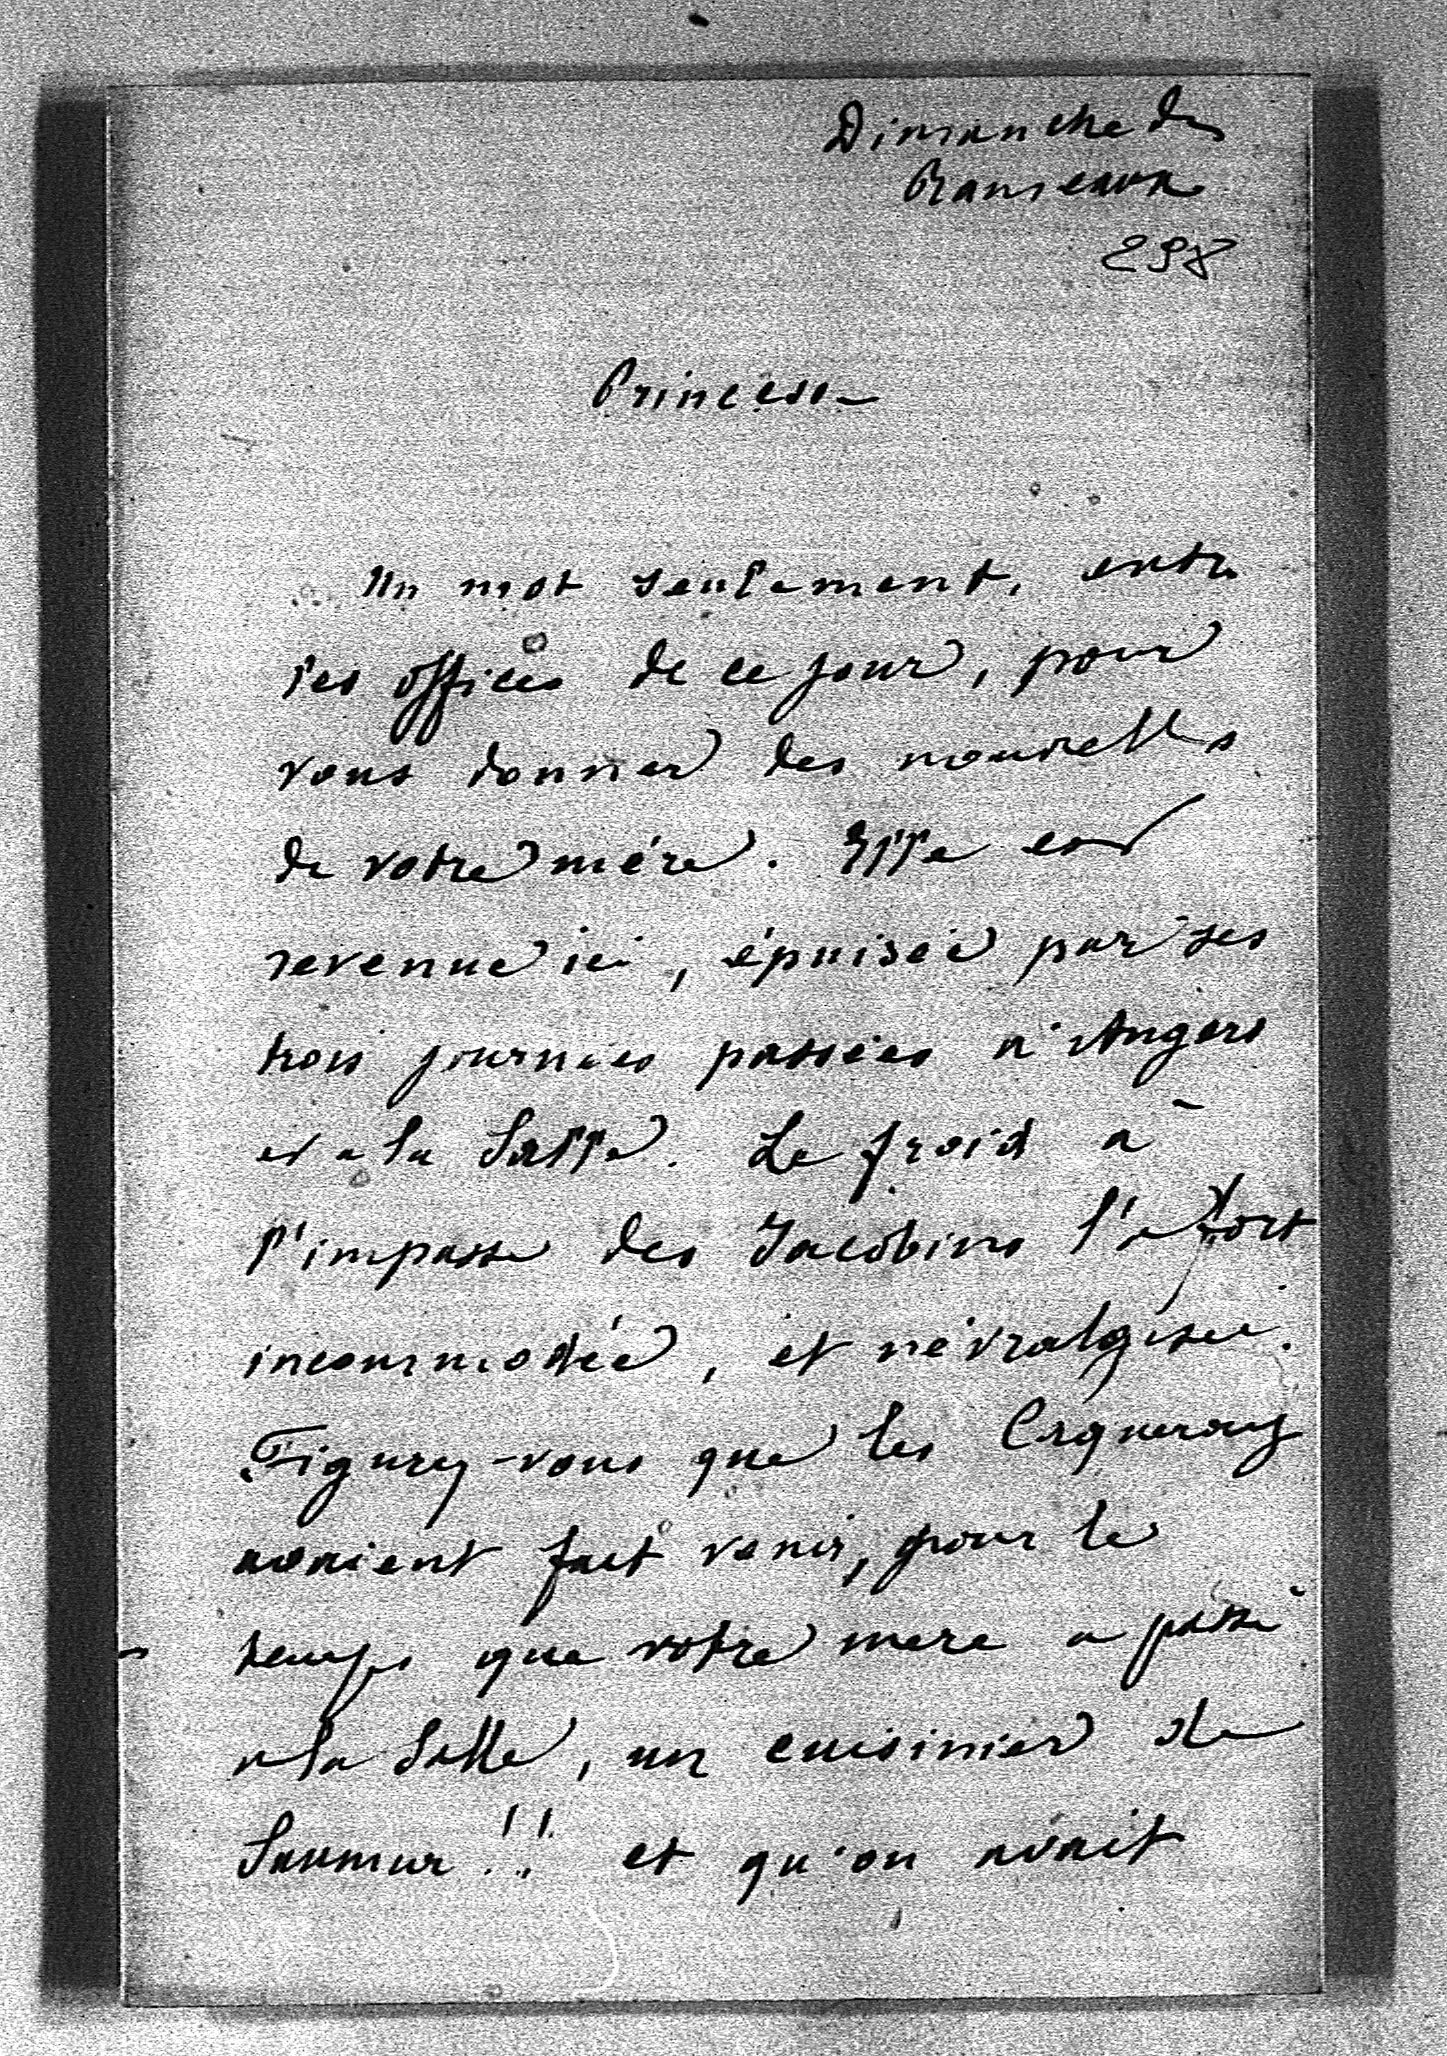 Dimanche des
Rameaux
298
Princesse
Un mot seulement, entre
les offices de ce jour, pour
vous donner des nouvelles
de votre mère. Elle est
revenue ici, épuisée par ses
trois journées passées à Angers
et à la Salle. Le froid à
l'impasse des Jacobins l'a fort
incommodée, et névralgisée.
Figurez-vous que les
avaient fait venir, pour le
temps que votre mère a passé
à la Salle, un cuisinier de
Saumur !! et qu'on avait